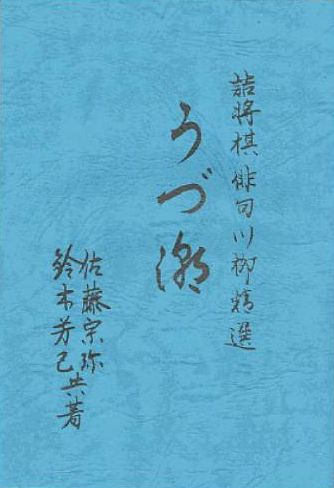 詰将棋俳句川柳精選
うづ潮
佐藤宗弥
鈴木芳己共著